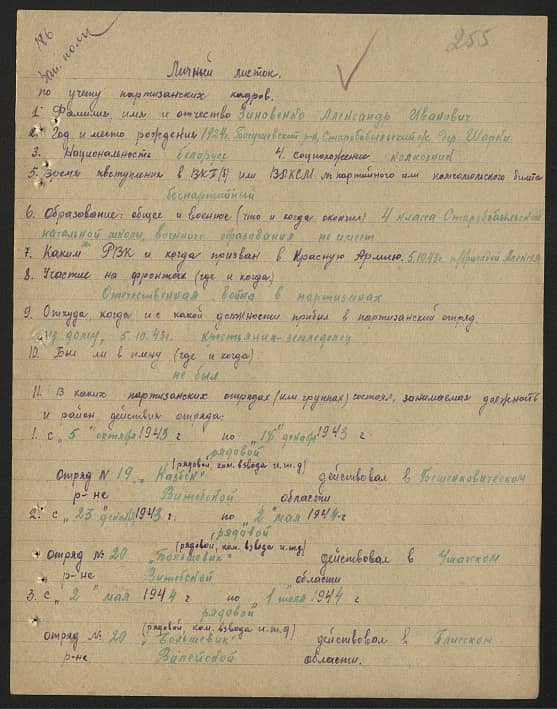 186
Зап. полк
255
Личный листок.
по учету партизанских кадров.
1. Фамилия, имя и отчество Зиновенко Александр Иванович
2. Год и место рождения 1924г. Богушевский р-н, Старобобыльский с/с дер. Шарки.
3. Национальность беларус 4. соцположение колхозник
5. Время вступления в ВКП(б) или ВЛКСМ № партийного или комсомольского билета
беспартийный
6. Образование: общее и военное (что и когда окончил) 4 класса Старобобыльской
начальной школы, военного образования не имеет
7. Каким РВК и когда призван в Красную Армию. 5.10.43г.
8. Участие на фронтах (где и когда)
Отечественная война в партизанах
9. Откуда, когда и с какой должности прибыл в партизанский отряд
из дому, 5.10.43г. крестьянин-земледелец
10. Был ли в плену (где и когда)
не был
11. В каких партизанских отрядах (или группах) состоял, занимаемая должность
и район действия отряда.
1. с "5" октября 1943 г по "18" декабря 1943
рядовой
(рядовой, ком. взвода и.т.д)
отряд N 19 действовал в Бешенковическом
р-не Витебской области
2. с "23" декабря 1943 г. по "2" мая 1944 г
рядовой
(рядовой, ком. взвода и.т.д)
отряд №. 20 "Большевик" действовал в Ушачском
р-не Витебской области
3. с "2" мая 1944 г по 1 июля 1944 г
рядовой
(рядовой, ком. взвода и.т.д)
отряд №. 20 "Большевик" действовал в Глисском
р-не Вилейской области.